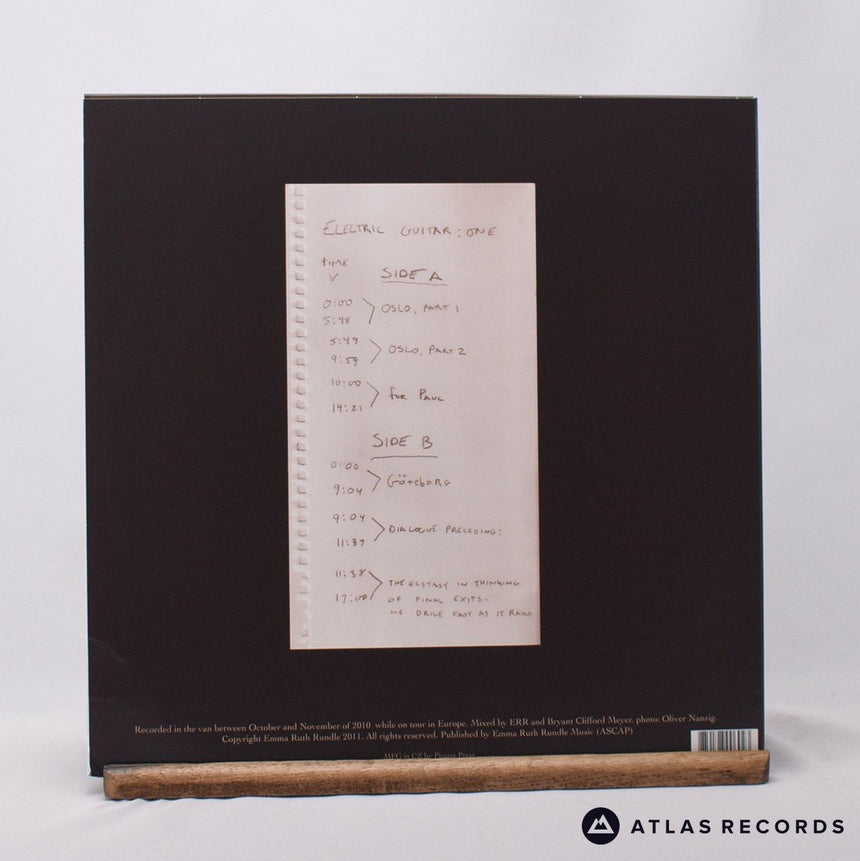 ELECTRIC GUITAR: ONE
TIME
V
SIDE A
0:00
OSLO, PART 1
5:48
5:49
OSLO, PART 2
9:59
10:00
for PAUL
14:21
SIDE B
0:00
GöteborG
9:04
9:04
DIALOGUE PRECEDING:
11:37
11:38
THE ECSTASY IN THINKING
17:00
OF FINAL EXITS-
WE DRIVE FAST AS IT RAINS
Recorded in the van between October and November of 2010 while on tour in Europe. Mixed by ERR and Bryant Clifford Meyer. photo: Oliver Nanzig.
Copyright Emma Ruth Rundle 2011. All rights reserved. Published by Emma Ruth Rundle Music (ASCAP)
MFG in CZ by Pirates Press
ATLAS RECORDS